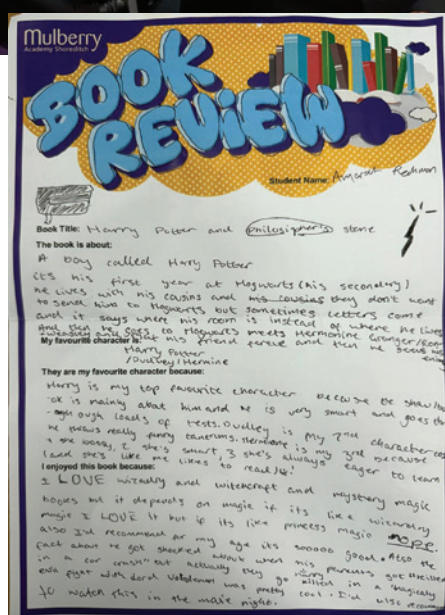 Mulberry
Academy Shoreditch
BOOK
REVIEW
Student Name:
Book Title: Harry Potter and philosipher's stone
The book is about:
A boy called Harry Potter
it's his first year at Hogwarts (his secondary)
he lives with his cousins and his cousins they don't want
to send him to Hogwarts but sometimes letters come
and it says where his room is instead of where he lives
And then he goes to Hogwarts meets Hermione Granger/Ron
weasley and his friend and then he
My favourite character is:
Harry Potter
/Dudley/Hermine
They are my favourite character because:
Harry is my top favourite character because
ok is mainly about him and he is very smart and goes thr
ough loads of tests. Dudley is my 2nd character
he throws really funny tantrums. Hermione is my 3rd because
she bossy, 2 she's smart, 3 she's always eager to learn
(and she's like me likes to read)
I enjoyed this book because:
I LOVE wizardry and witchcraft and mystery magic
books but it depends on magic if its like wizardry
magic I LOVE it but if its like princess magic nope.
also I'd recommend for my age its sooooo good. Also the
fact about he got shocked about when his parents got
in a car crash" but actually they got killed in a magically
fight with lord Voldemort was pretty cool. I'd also
to watch this in the movie night.